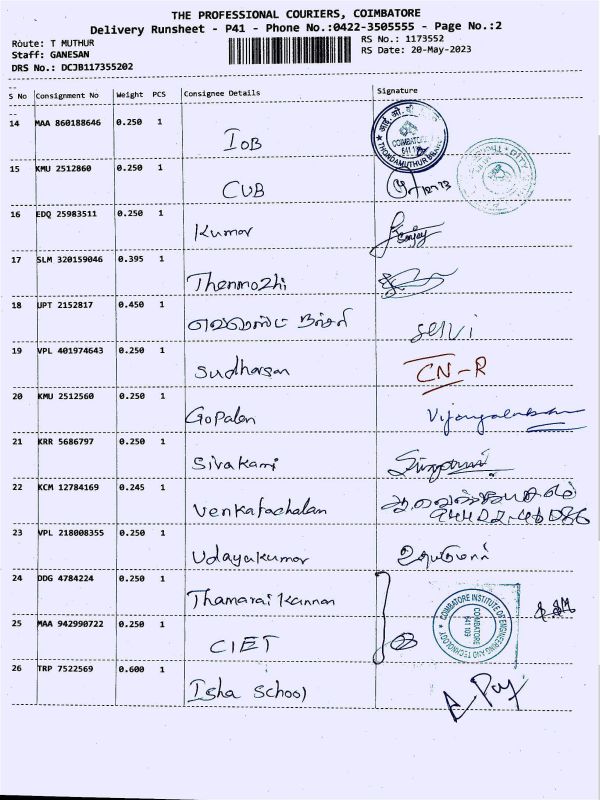 THE PROFESSIONAL COURIERS, COIMBATORE
Delivery Runsheet - P41 - Phone No.:0422-3505555 - Page No.:2
Route: T MUTHUR
RS No.: 1173552
Staff: GANESAN
RS Date: 20-May-2023
DRS No.: DCJB117355202
S No Consignment No Weight PCS Consignee Details Signature
14 MAA 860188646 0.250 1 IOB
COIMBATORE
THONDAMUTHUR BRANCH
15 KMU 2512860 0.250 1 CUB
16 EDQ 25983511 0.250 1 Kumar Sanjay
17 SLM 320159046 0.395 1 Thenmozhi
18 UPT 2152817 0.450 1 selvi
19 VPL 401974643 0.250 1 Sudharsan CN-R
20 KMU 2512560 0.250 1 Gopalan
21 KRR 5686797 0.250 1 Sivakami
22 KCM 12784169 0.245 1 Venkatachalan
94422-46086
23 VPL 218008355 0.250 1 Udayakumar உதயகுமார்
24 DDG 4784224 0.250 1 Thamarai Kannan
25 MAA 942990722 0.250 1 CIET
COIMBATORE INSTITUTE OF ENGINEERING AND TECHNOLOGY
COIMBATORE
641 109
26 TRP 7522569 0.600 1 Isha School